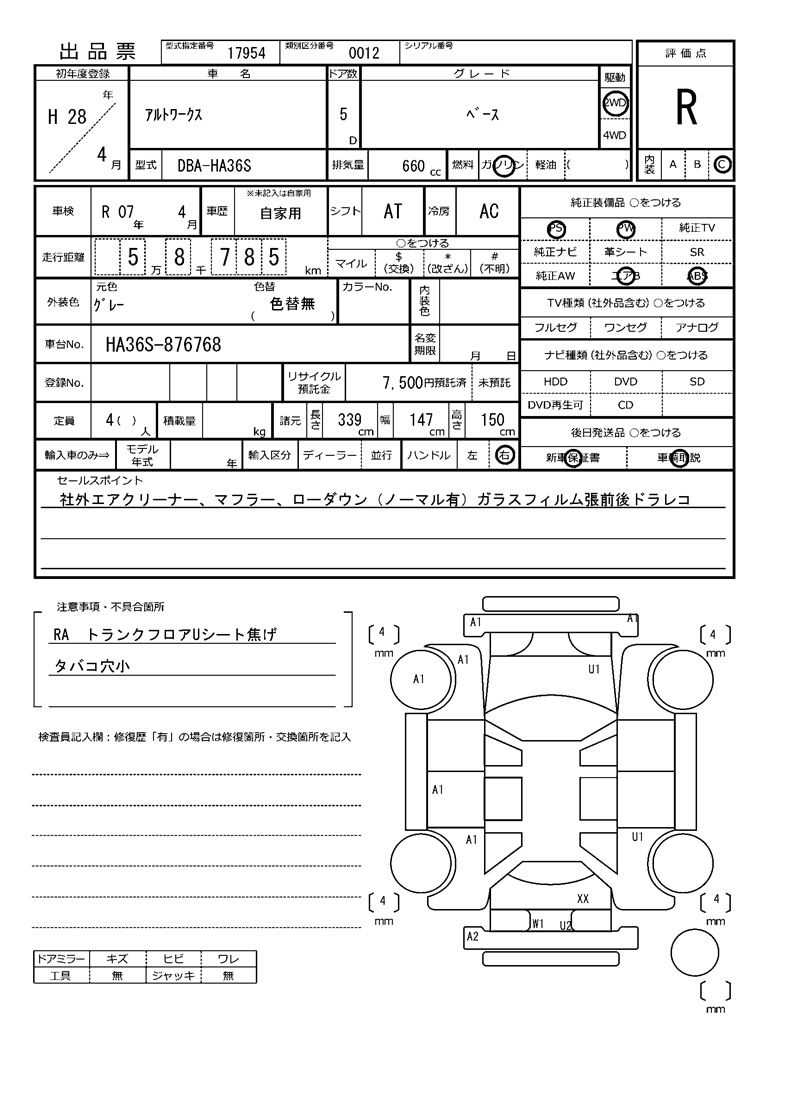 出品票 型式指定番号 17954 類別区分番号 0012 シリアル番号
評価点
初年度登録 車名 ドア数 グレード 駆動
H 28 年 4 月 アルトワークス 5 D ベース 2WD 4WD
R
型式 DBA-HA36S 排気量 660 cc 燃料 ガソリン 軽油 ( )
内装 A B C
車検 R 07 年 4 月 車歴 ※未記入は自家用 自家用 シフト AT 冷房 AC
走行距離 5 万 8 千 7 8 5 km
○をつける
マイル $ (交換) * (改ざん) # (不明)
外装色 元色 グレー 色替 ( 色替無 ) カラーNo. 内装色
車台No. HA36S-876768 名変期限 月 日
登録No. リサイクル預託金 7,500円預託済 未預託
定員 4( ) 人 積載量 kg 諸元 長さ 339 cm 幅 147 cm 高さ 150 cm
輸入車のみ⇒ モデル年式 年 輸入区分 ディーラー 並行 ハンドル 左 右
純正装備品 ○をつける
PS PW 純正TV
純正ナビ 革シート SR
純正AW エアB ABS
TV種類 (社外品含む) ○をつける
フルセグ ワンセグ アナログ
ナビ種類 (社外品含む) ○をつける
HDD DVD SD
DVD再生可 CD
後日発送品 ○をつける
新車保証書 車輌取説
セールスポイント
社外エアクリーナー、マフラー、ローダウン（ノーマル有）ガラスフィルム張前後ドラレコ
注意事項・不具合箇所
RA トランクフロアUシート焦げ
タバコ穴小
検査員記入欄：修復歴「有」の場合は修復箇所・交換箇所を記入
ドアミラー キズ ヒビ ワレ
工具 無 ジャッキ 無
A1 A1
4 mm 4 mm
A1 U1
A1
A1
A1 U1
4 mm 4 mm
XX
W1 U2
A2
mm